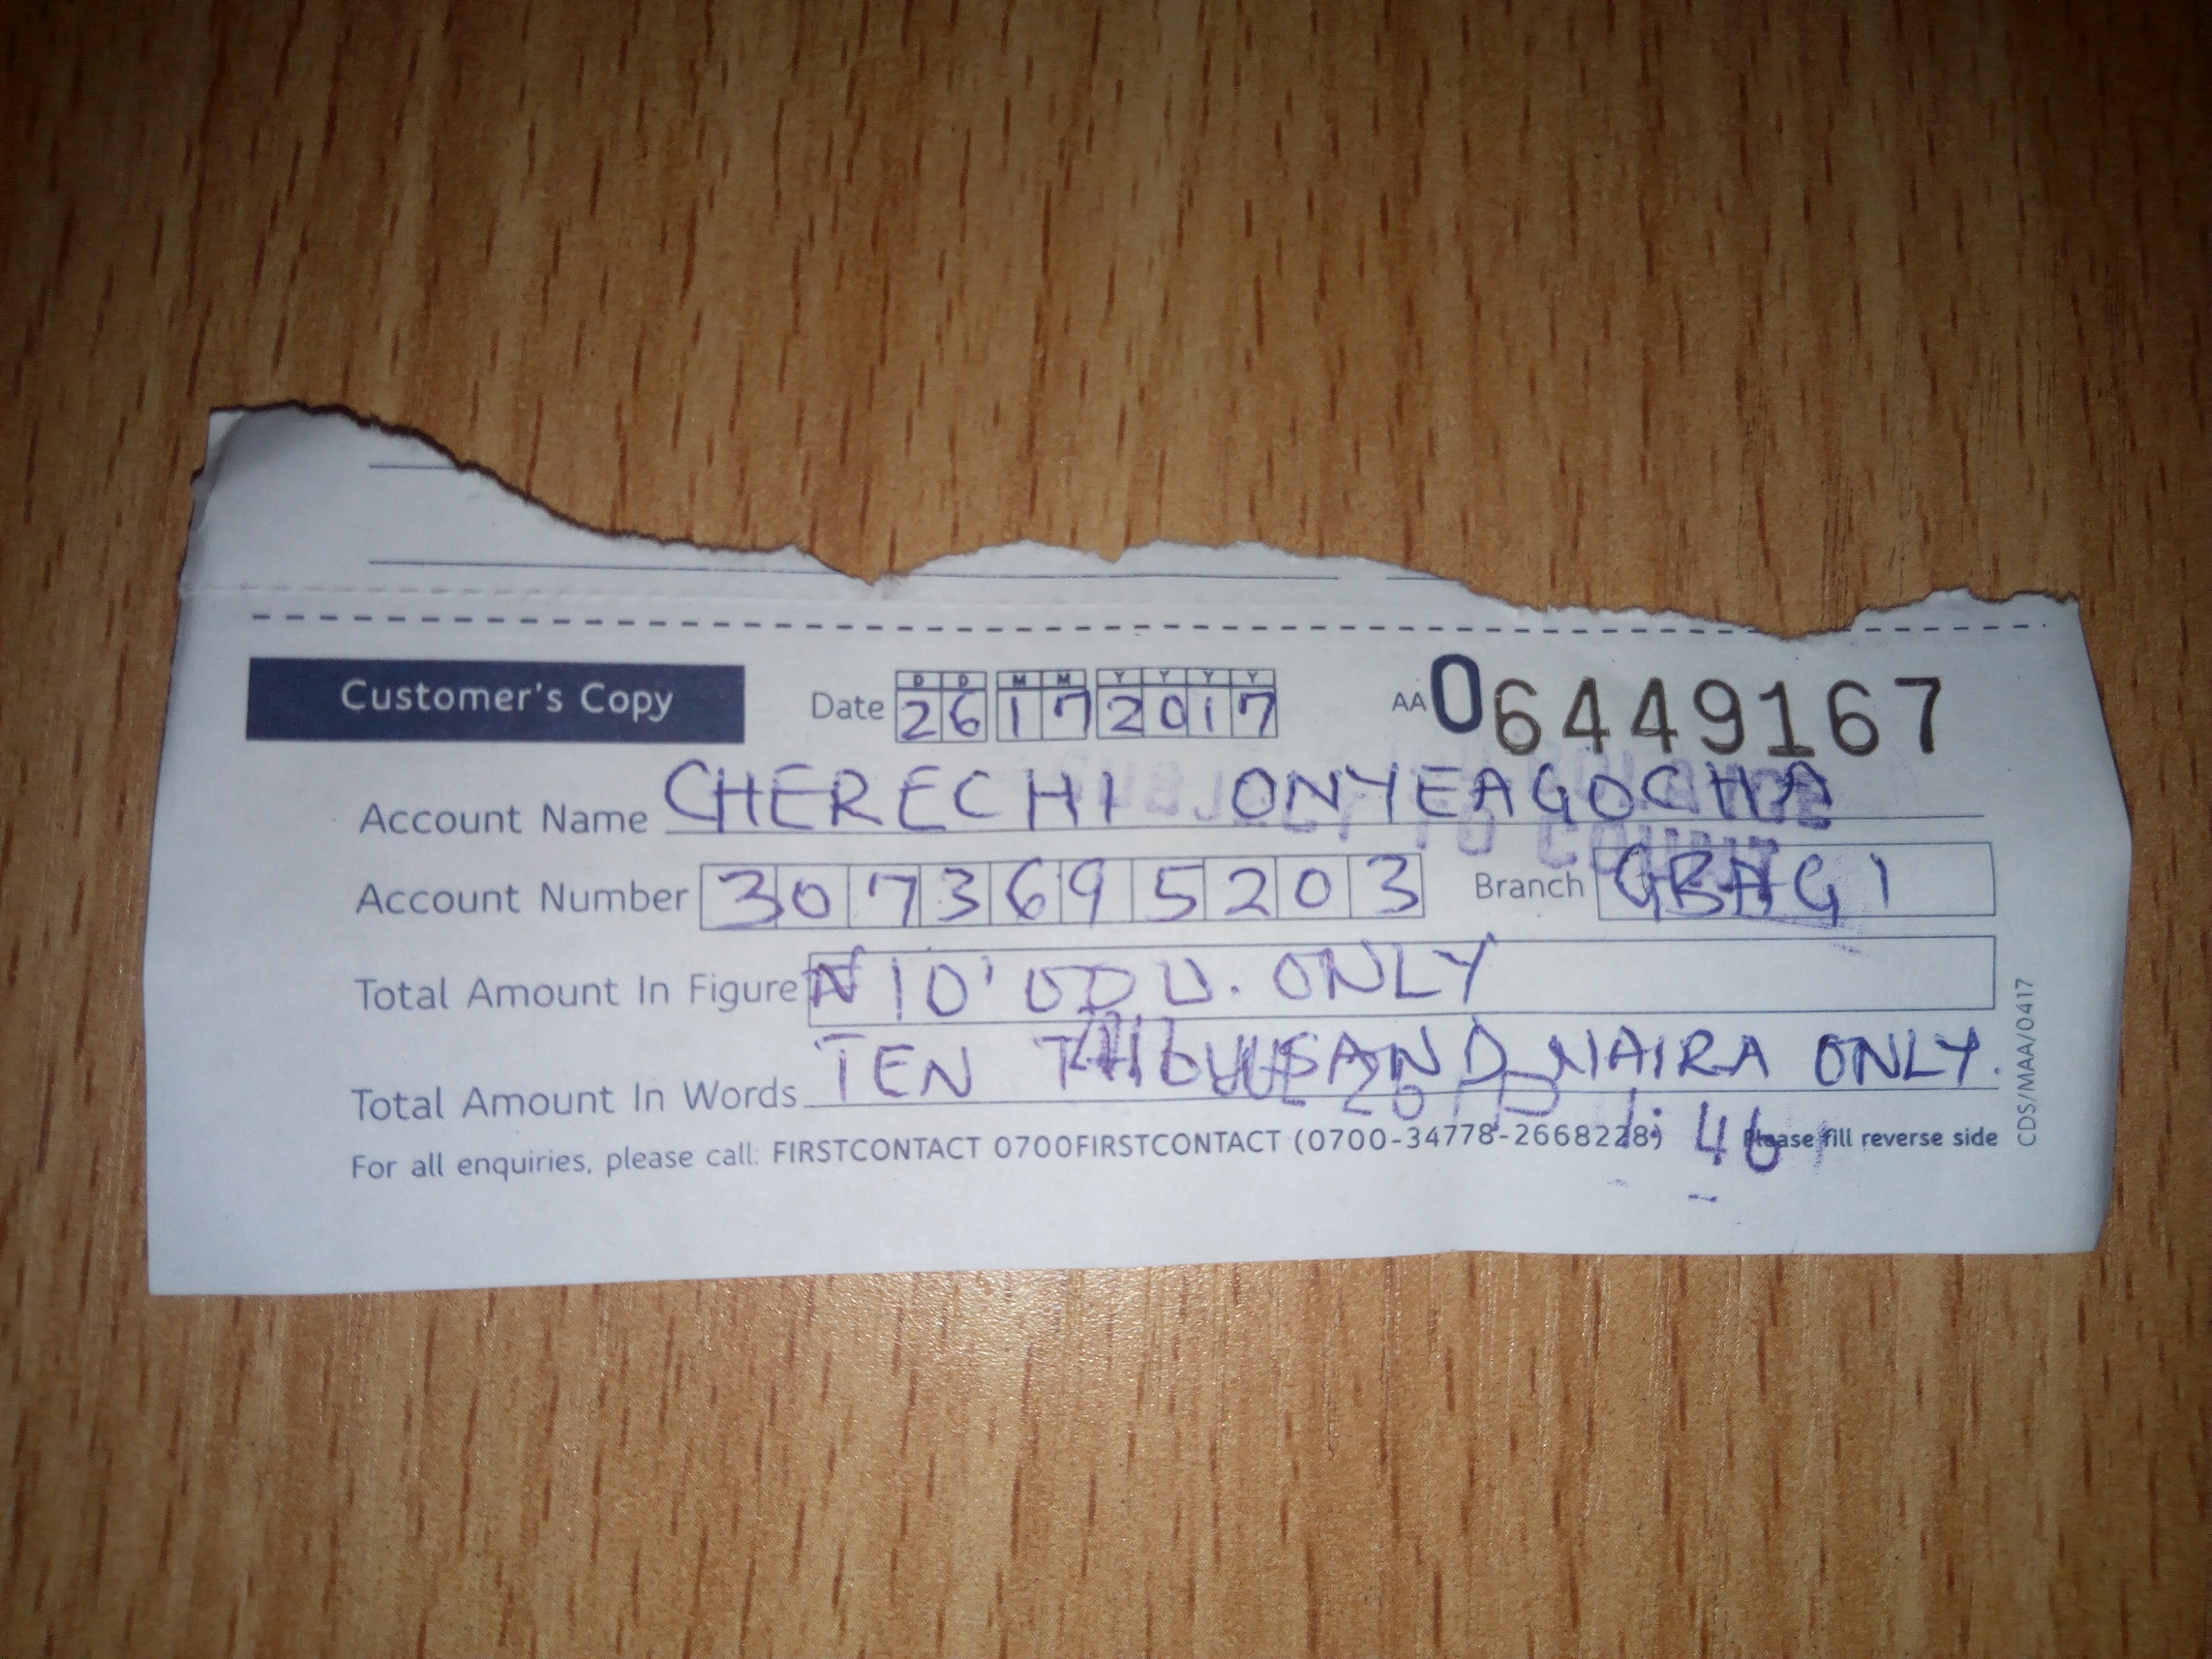 Customer's Copy Date D D M M Y Y Y Y AA 06449167
26 17 2017
Account Name CHERECHI ONYEAGOCHA
SUBJECT TO COUNT
Account Number 3073695203 Branch GBAGI
Total Amount In Figure ₦10'000. ONLY
Total Amount In Words TEN THOUSAND NAIRA ONLY.
For all enquiries, please call: FIRSTCONTACT 0700FIRSTCONTACT (0700-34778-2668228) Please fill reverse side
CDS/MAA/0417